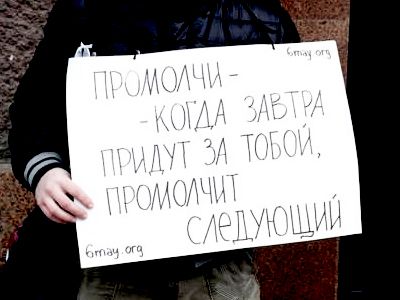 6may.org
ПРОМОЛЧИ -
- КОГДА ЗАВТРА
ПРИДУТ ЗА ТОБОЙ,
ПРОМОЛЧИТ
СЛЕДУЮЩИЙ
6may.org